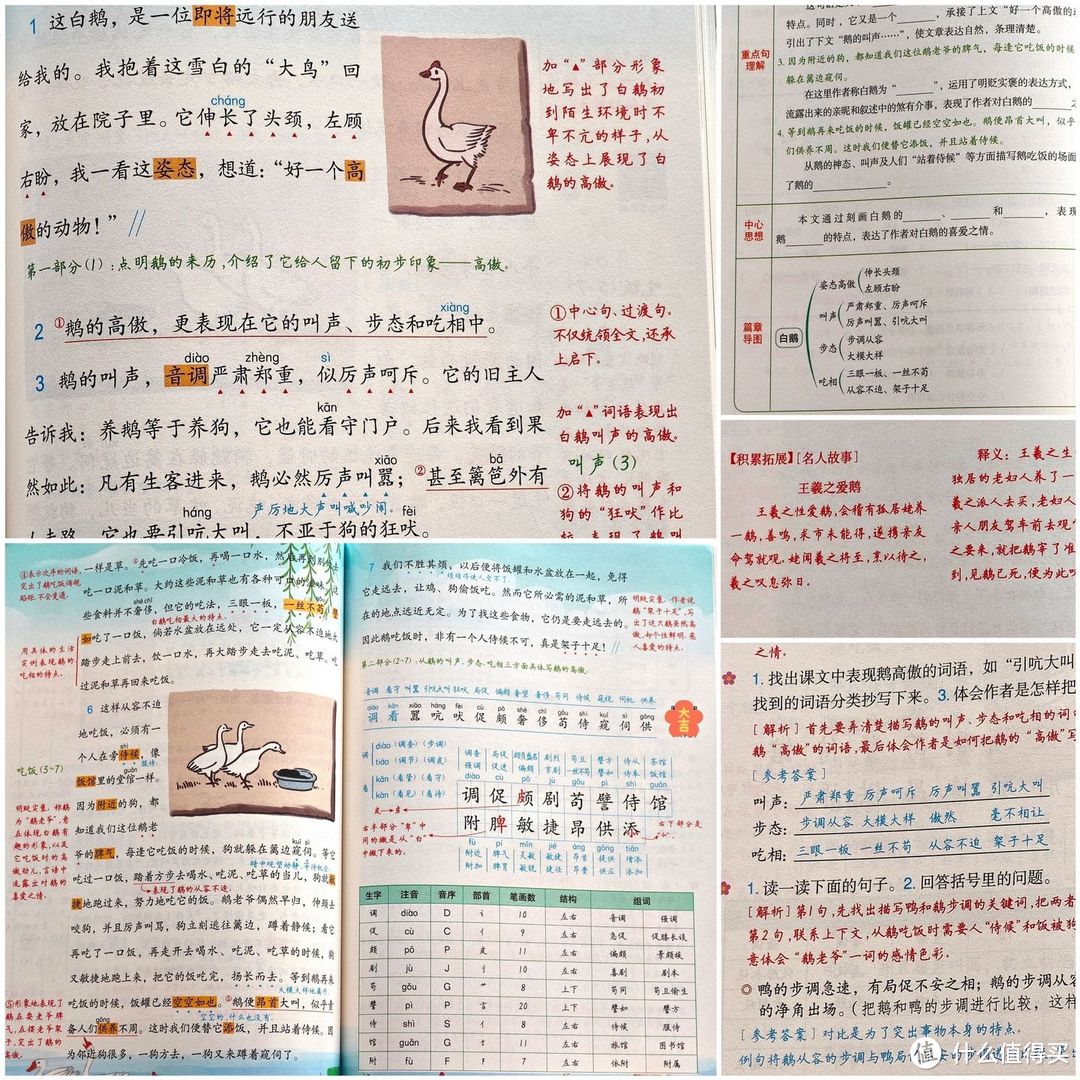 1 这白鹅，是一位即将远行的朋友送
给我的。我抱着这雪白的“大鸟”回
cháng
家，放在院子里。它伸长了头颈，左顾
右盼，我一看这姿态，想道：“好一个高
傲的动物！”
第一部分(1)：点明鹅的来历，介绍了它给人留下的初步印象——高傲。
加“▲”部分形象
地写出了白鹅初
到陌生环境时不
卑不亢的样子，从
姿态上展现了白
鹅的高傲。
xiàng
2 ①鹅的高傲，更表现在它的叫声、步态和吃相中。
①中心句、过渡句。
不仅统领全文，还承
上启下。
diào zhèng sì
3 鹅的叫声，音调严肃郑重，似厉声呵斥。它的旧主人
kān
告诉我：养鹅等于养狗，它也能看守门户。后来我看到果
xiāo bā
然如此：凡有生客进来，鹅必然厉声叫嚣；②甚至篱笆外有
严厉地大声叫喊吵闹。
háng fèi
人走路，它也要引吭大叫，不亚于狗的狂吠。
加“▲”词语表现出
白鹅叫声的高傲。
叫声(3)
②将鹅的叫声和
狗的“狂吠”作比
重点句
理解
特点。同时，它又是一个______，承接了上文“好一个高傲的
引出了下文“鹅的叫声……”，使文章表达自然，条理清楚。
3. 因为附近的狗，都知道我们这位鹅老爷的脾气，每逢它吃饭的时候
躲在篱边窥伺。
在这里作者称白鹅为“______”，运用了明贬实褒的表达方式，
流露出来的亲昵和叙述中的煞有介事，表现了作者对白鹅的______
4. 等到鹅再来吃饭的时候，饭罐已经空空如也。鹅便昂首大叫，似乎
们供养不周。这时我们便替它添饭，并且站着侍候。
从鹅的神态、叫声及人们“站着侍候”等方面描写鹅吃饭的场面
了鹅的____________。
中心
思想
本文通过刻画白鹅的______、______和______，表现
鹅______的特点，表达了作者对白鹅的喜爱之情。
篇章
导图
白鹅
姿态高傲
伸长头颈
左顾右盼
叫声
严肃郑重、厉声呵斥
厉声叫嚣、引吭大叫
步态
步调从容
大模大样
吃相
三眼一板、一丝不苟
从容不迫、架子十足
【积累拓展】［名人故事］
王羲之爱鹅
王羲之性爱鹅，会稽有孤居姥养
一鹅，善鸣，求市未能得，遂携亲友
命驾就观。姥闻羲之将至，烹以待之，
羲之叹息弥日。
释义：王羲之生
独居的老妇人养了一
羲之派人去买，老妇人
亲人朋友驾车前去观
之要来，就把鹅宰了准
到，见鹅已死，便为此叹
之情。
1. 找出课文中表现鹅高傲的词语，如“引吭大叫
找到的词语分类抄写下来。3. 体会作者是怎样把
［解析］首先要弄清楚描写鹅的叫声、步态和吃相的词句
鹅“高傲”的词语，最后体会作者是如何把鹅的“高傲”写
［参考答案］
叫声：严肃郑重 厉声呵斥 厉声叫嚣 引吭大叫
步态：步调从容 大模大样 傲然 毫不相让
吃相：三眼一板 一丝不苟 从容不迫 架子十足
1. 读一读下面的句子。2. 回答括号里的问题。
［解析］第1句，先找出描写鸭和鹅步调的关键词，把两者
第2句，联系上下文，从鹅吃饭时需要人“侍候”和饭被狗
意体会“鹅老爷”一词的感情色彩。
◎ 鸭的步调急速，有局促不安之相；鹅的步调从容
的净角出场。（把鹅和鸭的步调进行比较，这样
［参考答案］对比是为了突出事物本身的特点。
例句将鹅从容的步调与鸭局
④表示次序的词语，
突出了鹅吃饭循规
蹈矩，不会变通。
一样是草。④先吃一口冷饭，再喝一口水，然后再到别处去
吃一口泥和草。大约这些泥和草也有各种可口的滋味。
shē chǐ
些食料并不奢侈，但它的吃法，三眼一板，一丝不苟。譬
白鹅吃相最大的特点。
如吃了一口饭，倘若水盆放在远处，它一定从容不迫地大
踏步走上前去，饮一口水，再大踏步走去吃泥、吃草。吃
过泥和草再回来吃饭。
用具体的生活
实例表现鹅的
吃相的特点。
6 这样从容不迫
地吃饭，必须有一
shì
个人在旁侍候，像
服侍。
饭馆里的堂倌一样。
因为附近的狗，都
知道我们这位鹅老
kuī sì
爷的脾气，每逢它吃饭的时候，狗就躲在篱边窥伺。等它
暗中观望动静，等待机会。
吃过一口饭，踏着方步去喝水、吃泥、吃草的当儿，狗就敏
表现了鹅的从容不迫。
捷地跑过来，努力地吃它的饭。鹅老爷偶然早归，伸颈去
咬狗，并且厉声叫骂，狗立刻逃往篱边，蹲着静候；看它
再吃了一口饭，再走开去喝水、吃泥、吃草的时候，狗
又敏捷地跑上来，把它的饭吃完，扬长而去。等到鹅再来
大模大样地离开。
吃饭的时候，饭罐已经空空如也。⑤鹅便昂首大叫，似乎责
空空的，什么也没有。
gōng
备人们供养不周。这时我们便替它添饭，并且站着侍候。因
为邻近狗很多，一狗方去，一狗又来蹲着窥伺了。
吃饭(5~7)
明贬实褒。称鹅
为“鹅老爷”，意
在体现白鹅有
趣的形象，以及
它吃饭时的高
傲劲儿，言语中
流露出对鹅的
喜爱之情。
⑤形象地表现了
7 我们不胜其烦，以后便将饭罐和水盆放在一起，免得
烦琐得使人受不了。
它走远去，让鸡、狗偷饭吃。然而它所必需的泥和草，所
在的地点远近无定。为了找这些食物，它仍是要走远去的。
因此鹅吃饭时，非有一个人侍候不可，真是架子十足！
第二部分(2~7)：从鹅的叫声、步态、吃相三方面具体写鹅的高傲。
明贬实褒。作者说
鹅“架子十足”，写
出了这只鹅虽然高
傲，却个性鲜明，惹
人喜爱的特点。
音调 看守 叫嚣 引吭大叫 狂吠 局促 偏颇 奢望 奢侈 苟同 侍候 窥视 伺机 供养
diào kān xiāo háng fèi cù pō shē chǐ gǒu shì kuī sì gōng
调 看 嚣 吭 吠 促 颇 奢 侈 苟 侍 窥 伺 供
大吉
调 diào（调查）（步调）
tiáo（调节）（调皮）
看 kān（看管）（看守）
kàn（看见）（看待）
皮→皮
右半部分“卑”中
间的撇是从“白”
中撇下来的。
调查 局促 颇负盛名 剧烈 苟且 譬方 侍从 茶馆
强调 促进 偏颇 京剧 一丝不苟 譬如 侍奉 饭馆
diào cù pō jù gǒu pì shì guǎn
调 促 颇 剧 苟 譬 侍 馆
附 脾 敏 捷 昂 供 添
fù pí mǐn jié áng gōng tiān
附近 脾气 灵敏 敏捷 昂首 提供 增添
附加 脾胃 敏锐 捷径 昂贵 供应 添加
右下部分是
生字 注音 音序 部首 笔画数 结构 组词
调 diào D 讠 10 左右 音调 强调
促 cù C 亻 9 左右 急促 促膝长谈
颇 pō P 皮 11 左右 偏颇 景颇族
剧 jù J 刂 10 左右 喜剧 剧本
苟 gǒu G 艹 8 上下 苟同 苟且偷生
譬 pì P 言 20 上下 譬如 譬方
侍 shì S 亻 8 左右 侍候 服侍
馆 guǎn G 饣 11 左右 旅馆 图书馆
附 fù F 阝 7 左右 依附 附属
值 什么值得买